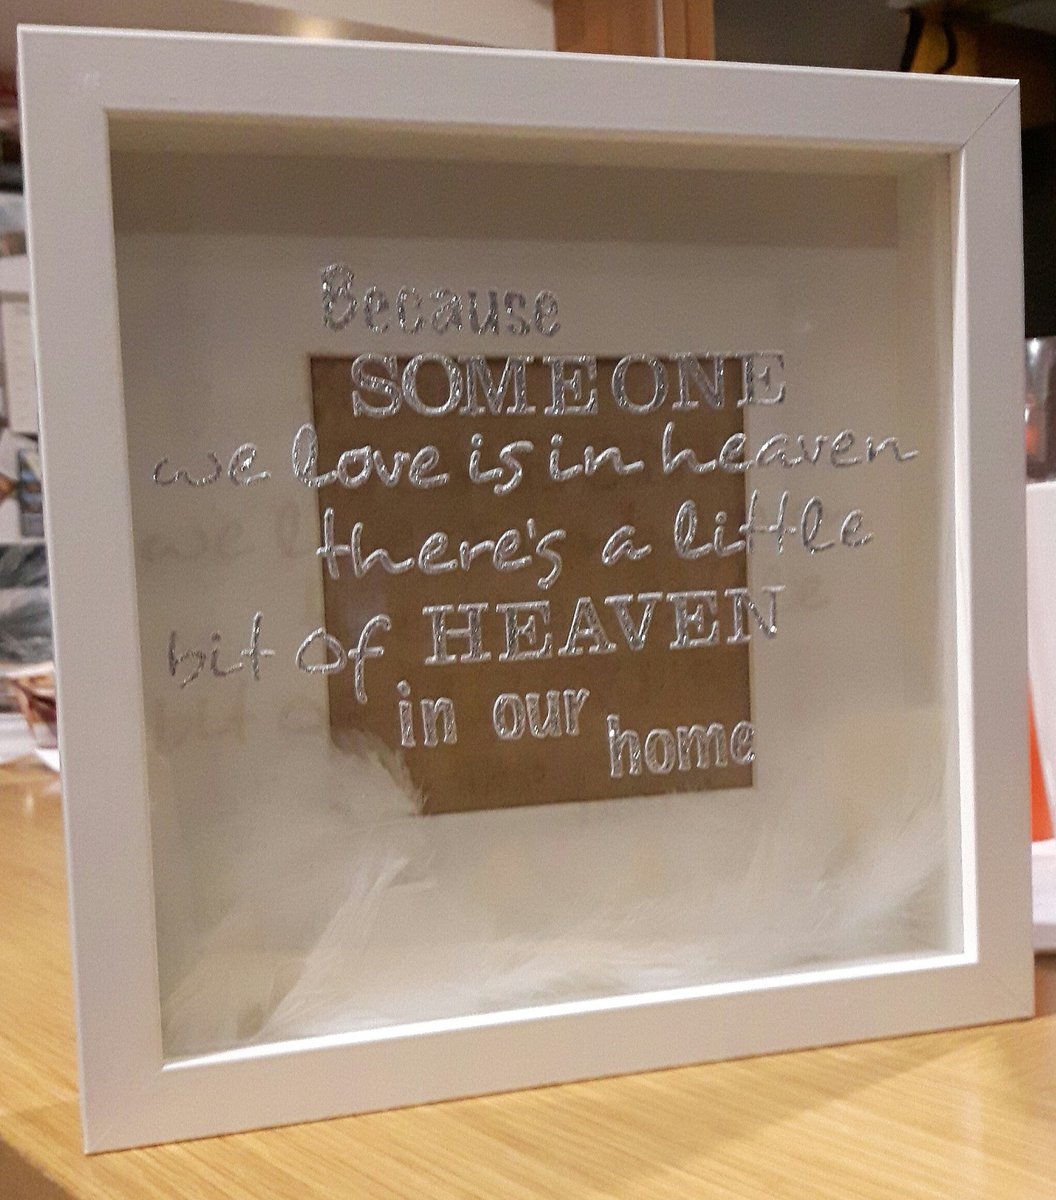 Because
SOMEONE
we love is in heaven
there's a little
bit of HEAVEN
in our
home